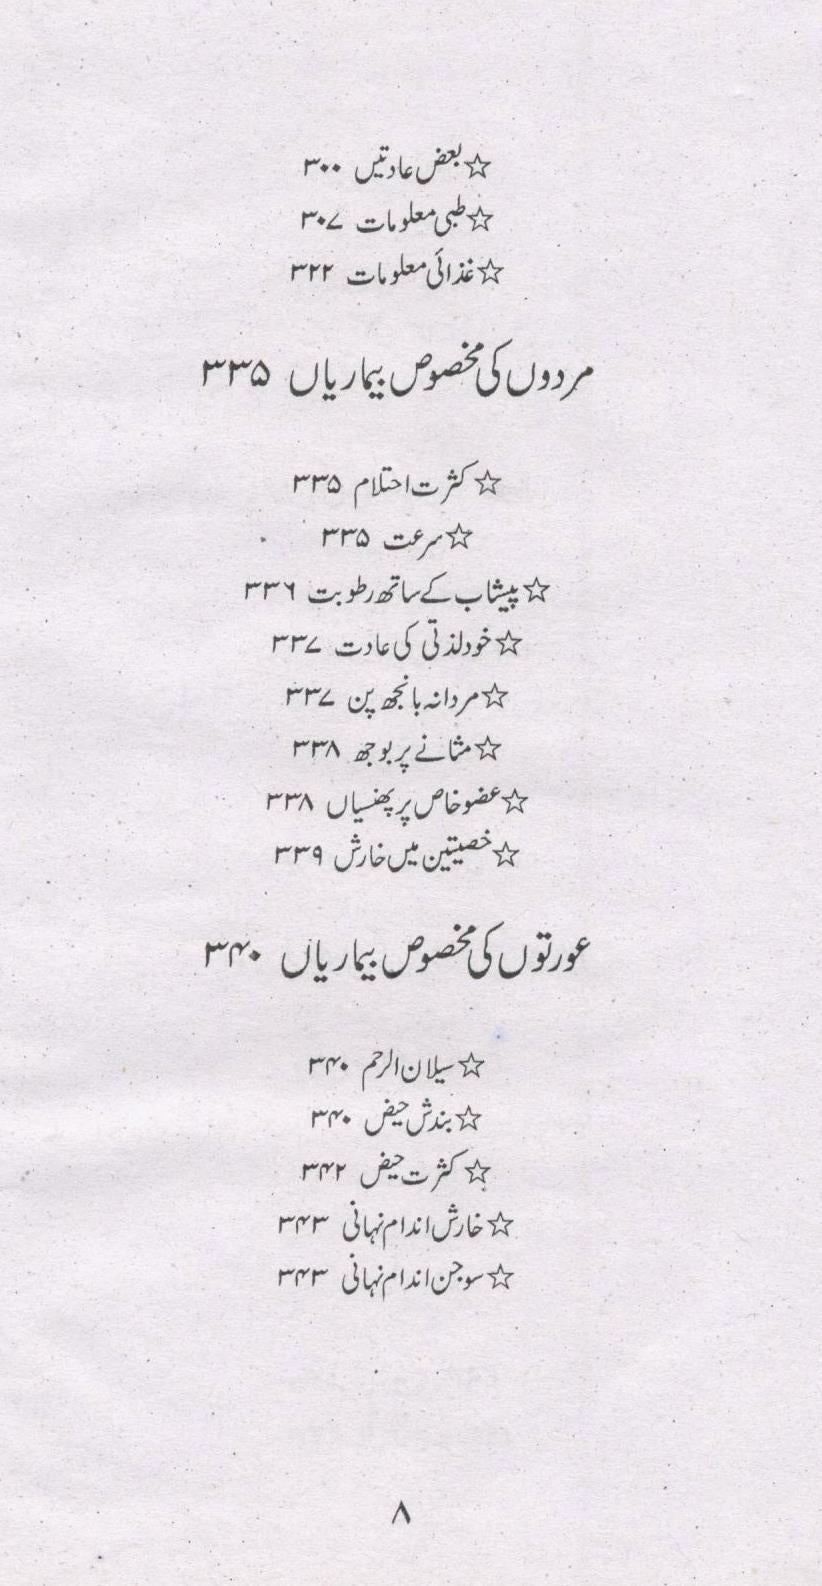 ☆ بعض عادتیں ۳۰۰
☆ طبی معلومات ۳۰۷
☆ غذائی معلومات ۳۲۲
مردوں کی مخصوص بیماریاں ۳۳۵
☆ کثرت احتلام ۳۳۵
☆ سرعت ۳۳۵
☆ پیشاب کے ساتھ رطوبت ۳۳۶
☆ خودلذتی کی عادت ۳۳۷
☆ مردانہ بانجھ پن ۳۳۷
☆ مثانے پر بوجھ ۳۳۸
☆ عضو خاص پر پھنسیاں ۳۳۸
☆ خصیتین میں خارش ۳۳۹
عورتوں کی مخصوص بیماریاں ۳۴۰
☆ سیلان الرحم ۳۴۰
☆ بندش حیض ۳۴۰
☆ کثرت حیض ۳۴۲
☆ خارش اندام نہانی ۳۴۳
☆ سوجن اندام نہانی ۳۴۳
۸